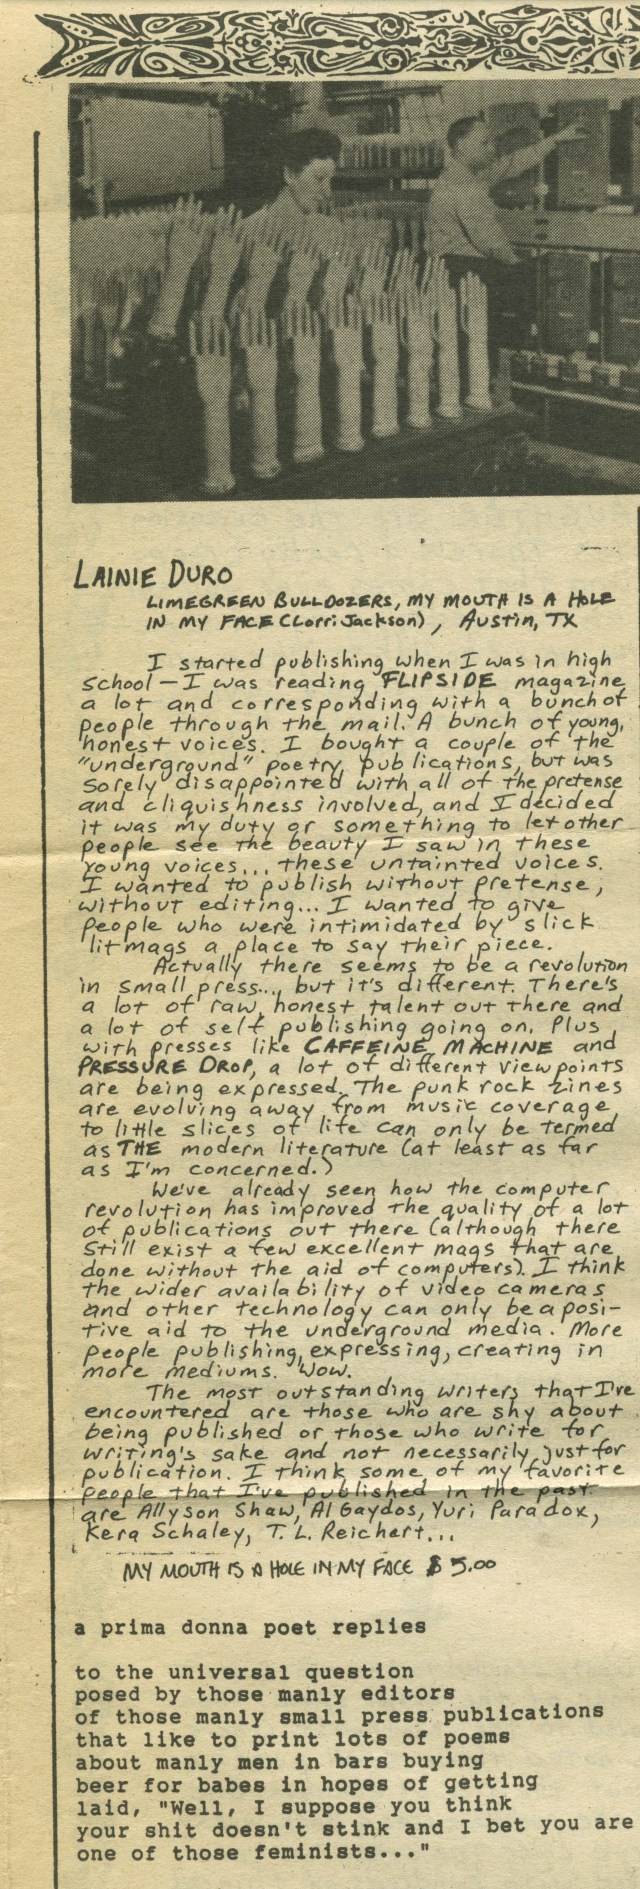 LAINIE DURO
LIMEGREEN BULLDOZERS, MY MOUTH IS A HOLE
IN MY FACE (Lorri Jackson), AUSTIN, TX
I started publishing when I was in high
school — I was reading FLIPSIDE magazine
a lot and corresponding with a bunch of
people through the mail. A bunch of young,
honest voices. I bought a couple of the
"underground" poetry publications, but was
sorely disappointed with all of the pretense
and cliquishness involved, and I decided
it was my duty or something to let other
people see the beauty I saw in these
young voices... these untainted voices.
I wanted to publish without pretense,
without editing... I wanted to give
people who were intimidated by slick
litmags a place to say their piece.
Actually there seems to be a revolution
in small press..., but it's different. There's
a lot of raw, honest talent out there and
a lot of self publishing going on. Plus
with presses like CAFFEINE MACHINE and
PRESSURE DROP, a lot of different viewpoints
are being expressed. The punk rock zines
are evolving away from music coverage
to little slices of life can only be termed
as THE modern literature (at least as far
as I'm concerned.)
We've already seen how the computer
revolution has improved the quality of a lot
of publications out there (although there
still exist a few excellent mags that are
done without the aid of computers). I think
the wider availability of video cameras
and other technology can only be a posi-
tive aid to the underground media. More
people publishing, expressing, creating in
more mediums. Wow.
The most outstanding writers that I've
encountered are those who are shy about
being published or those who write for
writing's sake and not necessarily just for
publication. I think some of my favorite
people that I've published in the past
are Allyson Shaw, Al Gaydos, Yuri Paradox,
Kera Schaley, T.L. Reichert...
MY MOUTH IS A HOLE IN MY FACE $5.00
a prima donna poet replies
to the universal question
posed by those manly editors
of those manly small press publications
that like to print lots of poems
about manly men in bars buying
beer for babes in hopes of getting
laid, "Well, I suppose you think
your shit doesn't stink and I bet you are
one of those feminists..."